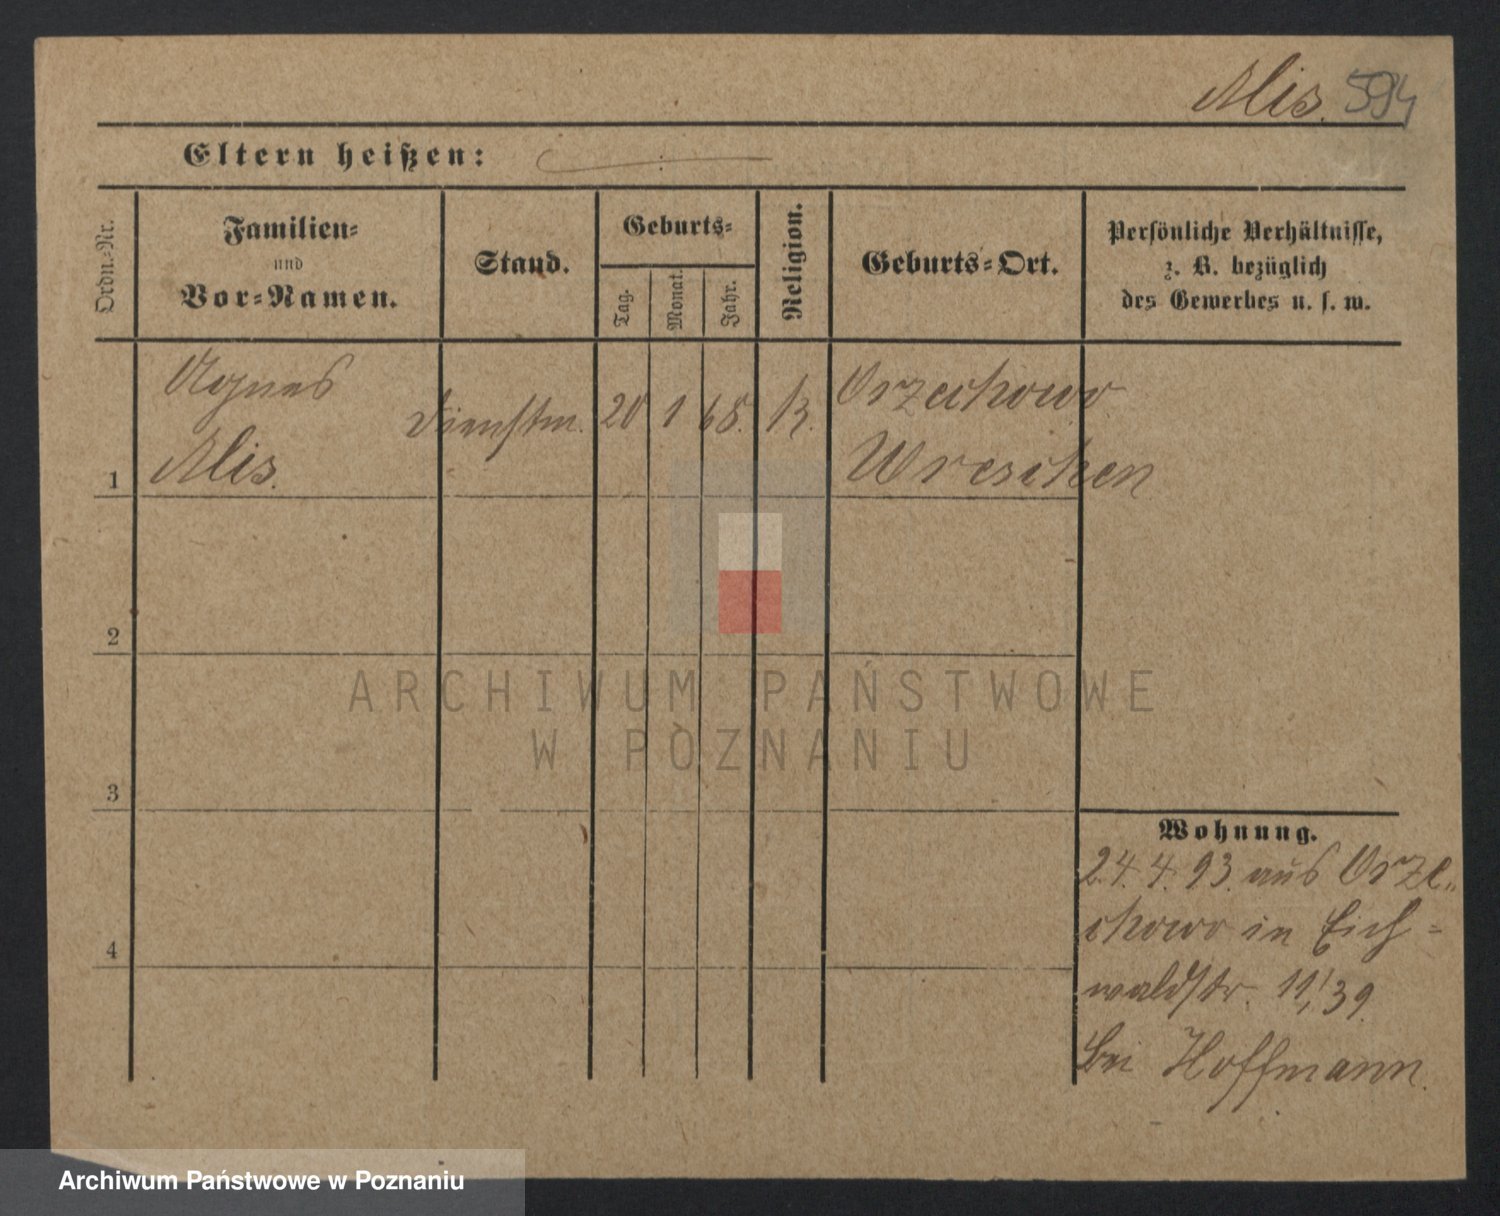 Alis. 594
Eltern heißen:
Ordn.-Nr.
Familien-
und
Vor-Namen.
Stand.
Geburts-
Tag.
Monat.
Jahr.
Religion.
Geburts-Ort.
Persönliche Verhältnisse,
z. B. bezüglich
des Gewerbes u. s. w.
1
Agnes
Alis.
Dienstm.
20
1
68.
K.
Orzechowo
Wreschen
2
3
4
Wohnung.
24. 4. 93. aus Orze-
chowo in Eich-
waldstr. 11/39.
bei Hoffmann.
ARCHIWUM PAŃSTWOWE
W POZNANIU
Archiwum Państwowe w Poznaniu